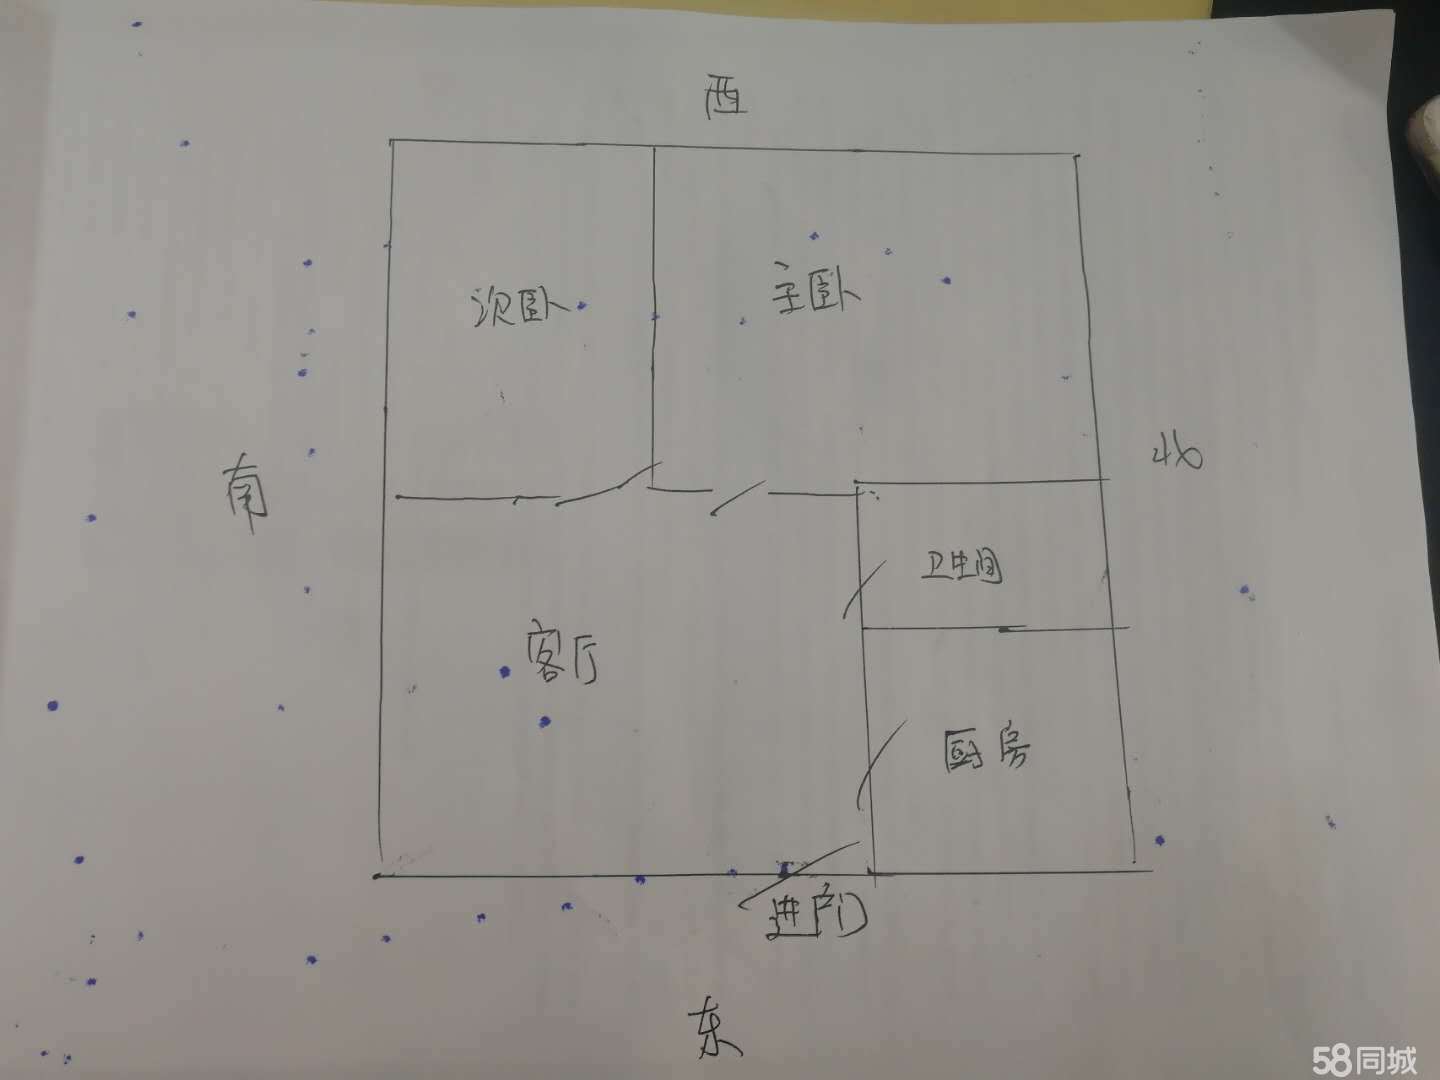 西
次卧
主卧
南
北
卫生间
客厅
厨房
进户门
东
58同城